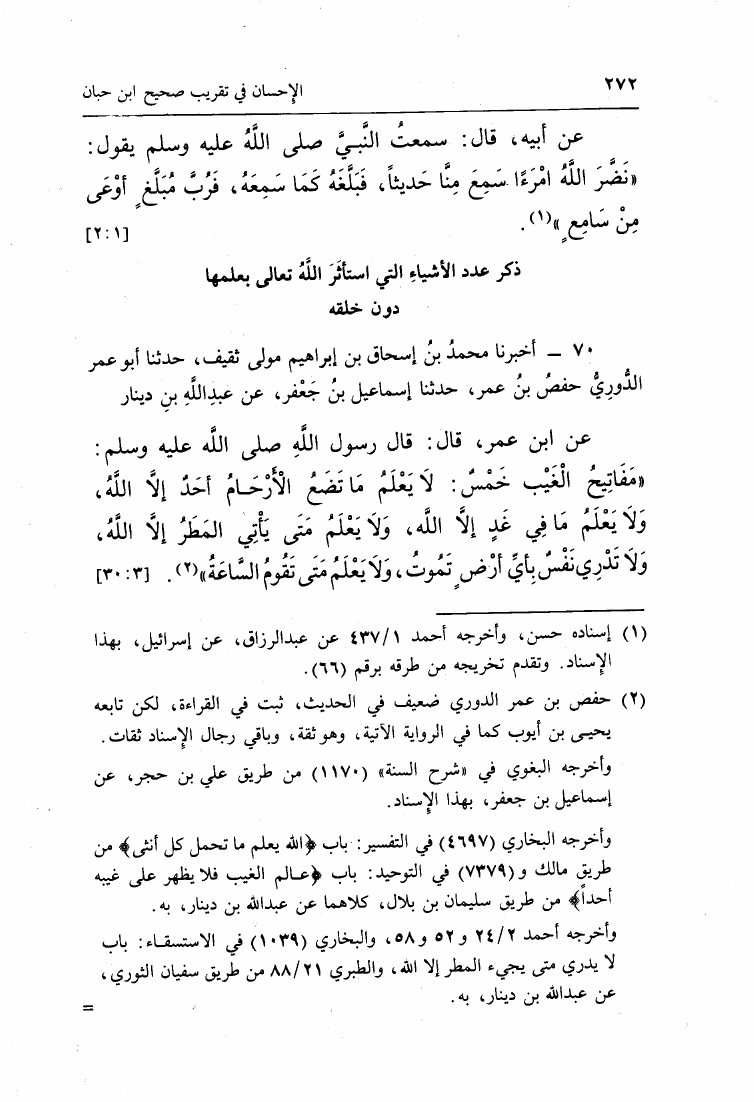 ٢٧٢
الإحسان في تقريب صحيح ابن حبان
عن أبيه، قال: سمعتُ النَّبيَّ صلى اللَّهُ عليه وسلم يقول:
«نَضَّرَ اللَّهُ امْرَءًا سَمِعَ مِنَّا حَدِيثاً، فَبَلَّغَهُ كَمَا سَمِعَهُ، فَرُبَّ مُبَلَّغٍ أَوْعَى
مِنْ سَامِعٍ»(١). [٢:١]
ذكر عدد الأشياءِ التي استأثَرَ اللَّهُ تعالى بعلمها
دون خلقه
٧٠ ــ أخبرنا محمدُ بنُ إسحاق بن إبراهيم مولى ثقيف، حدثنا أبو عمر
الدُّورِيُّ حفصُ بنُ عمر، حدثنا إسماعيل بنُ جَعْفر، عن عبدِاللَّهِ بنِ دينار
عن ابن عمر، قال: قال رسول اللَّهِ صلى اللَّه عليه وسلم:
«مَفَاتِيحُ الْغَيْبِ خَمْسٌ: لَا يَعْلَمُ مَا تَضَعُ الْأَرْحَامُ أَحَدٌ إلَّا اللَّهُ،
وَلَا يَعْلَمُ مَا فِي غَدٍ إلَّا اللَّه، وَلَا يَعْلَمُ مَتَى يَأْتِي المَطَرُ إلَّا اللَّهُ،
وَلَا تَدْرِي نَفْسٌ بِأَيِّ أَرْضٍ تَمُوتُ، وَلَا يَعْلَمُ مَتَى تَقُومُ السَّاعَةُ»(٢). [٣٠:٣]
(١) إسناده حسن، وأخرجه أحمد ٤٣٧/١ عن عبدالرزاق، عن إسرائيل، بهذا
الإسناد. وتقدم تخريجه من طرقه برقم (٦٦).
(٢) حفص بن عمر الدوري ضعيف في الحديث، ثبت في القراءة، لكن تابعه
يحيى بن أيوب كما في الرواية الآتية، وهو ثقة، وباقي رجال الإسناد ثقات.
وأخرجه البغوي في «شرح السنة» (١١٧٠) من طريق علي بن حجر، عن
إسماعيل بن جعفر، بهذا الإسناد.
وأخرجه البخاري (٤٦٩٧) في التفسير: باب ﴿الله يعلم ما تحمل كل أنثى﴾ من
طريق مالك و (٧٣٧٩) في التوحيد: باب ﴿عالم الغيب فلا يظهر على غيبه
أحداً﴾ من طريق سليمان بن بلال، كلاهما عن عبدالله بن دينار، به.
وأخرجه أحمد ٢٤/٢ و ٥٢ و ٥٨، والبخاري (١٠٣٩) في الاستسقاء: باب
لا يدري متى يجيء المطر إلا الله، والطبري ٨٨/٢١ من طريق سفيان الثوري،
عن عبدالله بن دينار، به.
=